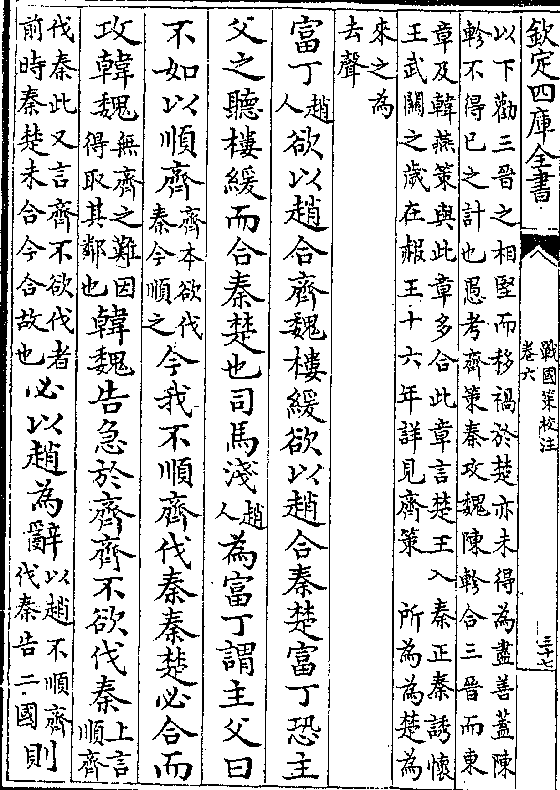 欽定四庫全書
戰國策校注
卷六
三十七
以下勸三晉之相堅而移禍於楚亦未得為盡善蓋陳
軫不得已之計也愚考齊策秦攻魏陳軫合三晉而東
章及韓燕策與此章多合此章言楚王入秦正秦誘懷
王武關之歲在赧王十六年詳見齊策　所為為楚為
來之為
去聲
富丁
趙
人
欲以趙合齊魏樓緩欲以趙合秦楚富丁恐主
父之聽樓緩而合秦楚也司馬淺
趙
人
為富丁謂主父曰
不如以順齊
齊本欲伐
秦今順之
今我不順齊伐秦秦楚必合而
攻韓魏
無齊之難因
得取其鄰也
韓魏告急於齊齊不欲伐秦
上言
順齊
伐秦此又言齊不欲伐者
前時秦楚未合今合故也
必以趙為辭
以趙不順齊
伐秦告二國
則